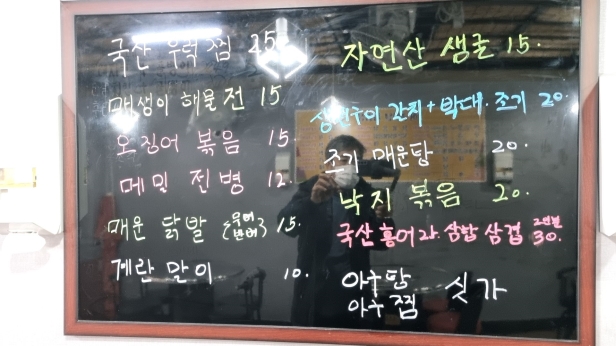 국산 우럭찜 25
매생이 해물전 15
오징어 볶음 15.
메밀 전병 12.
매운 닭발 15.
계란 말이 10.
자연산 생굴 15.
생선구이 갈치+박대.조기 20.
조기 매운탕 20.
낙지 볶음 20.
국산 홍어과 삼합 삼겹 2인분 30.
아구탕
아구찜 싯가